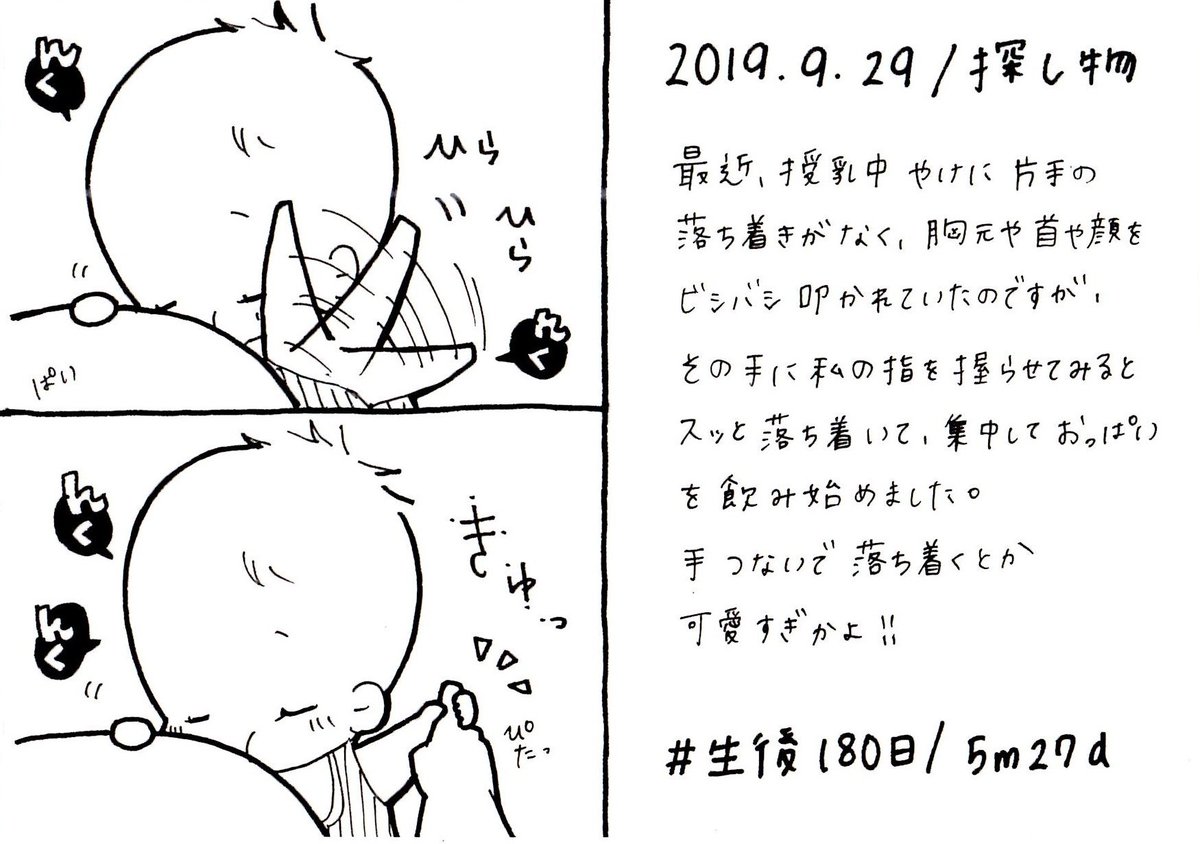 んく
ひら
ひら
んく
ぱい
んく
んく
きゅっ
ぴたっ
2019.9.29/探し物
最近、授乳中やけに片手の
落ち着きがなく、胸元や首や顔を
ビシバシ叩かれていたのですが、
その手に私の指を握らせてみると
スッと落ち着いて、集中しておっぱい
を飲み始めました。
手つないで落ち着くとか
可愛すぎかよ!!
#生後180日/5m27d